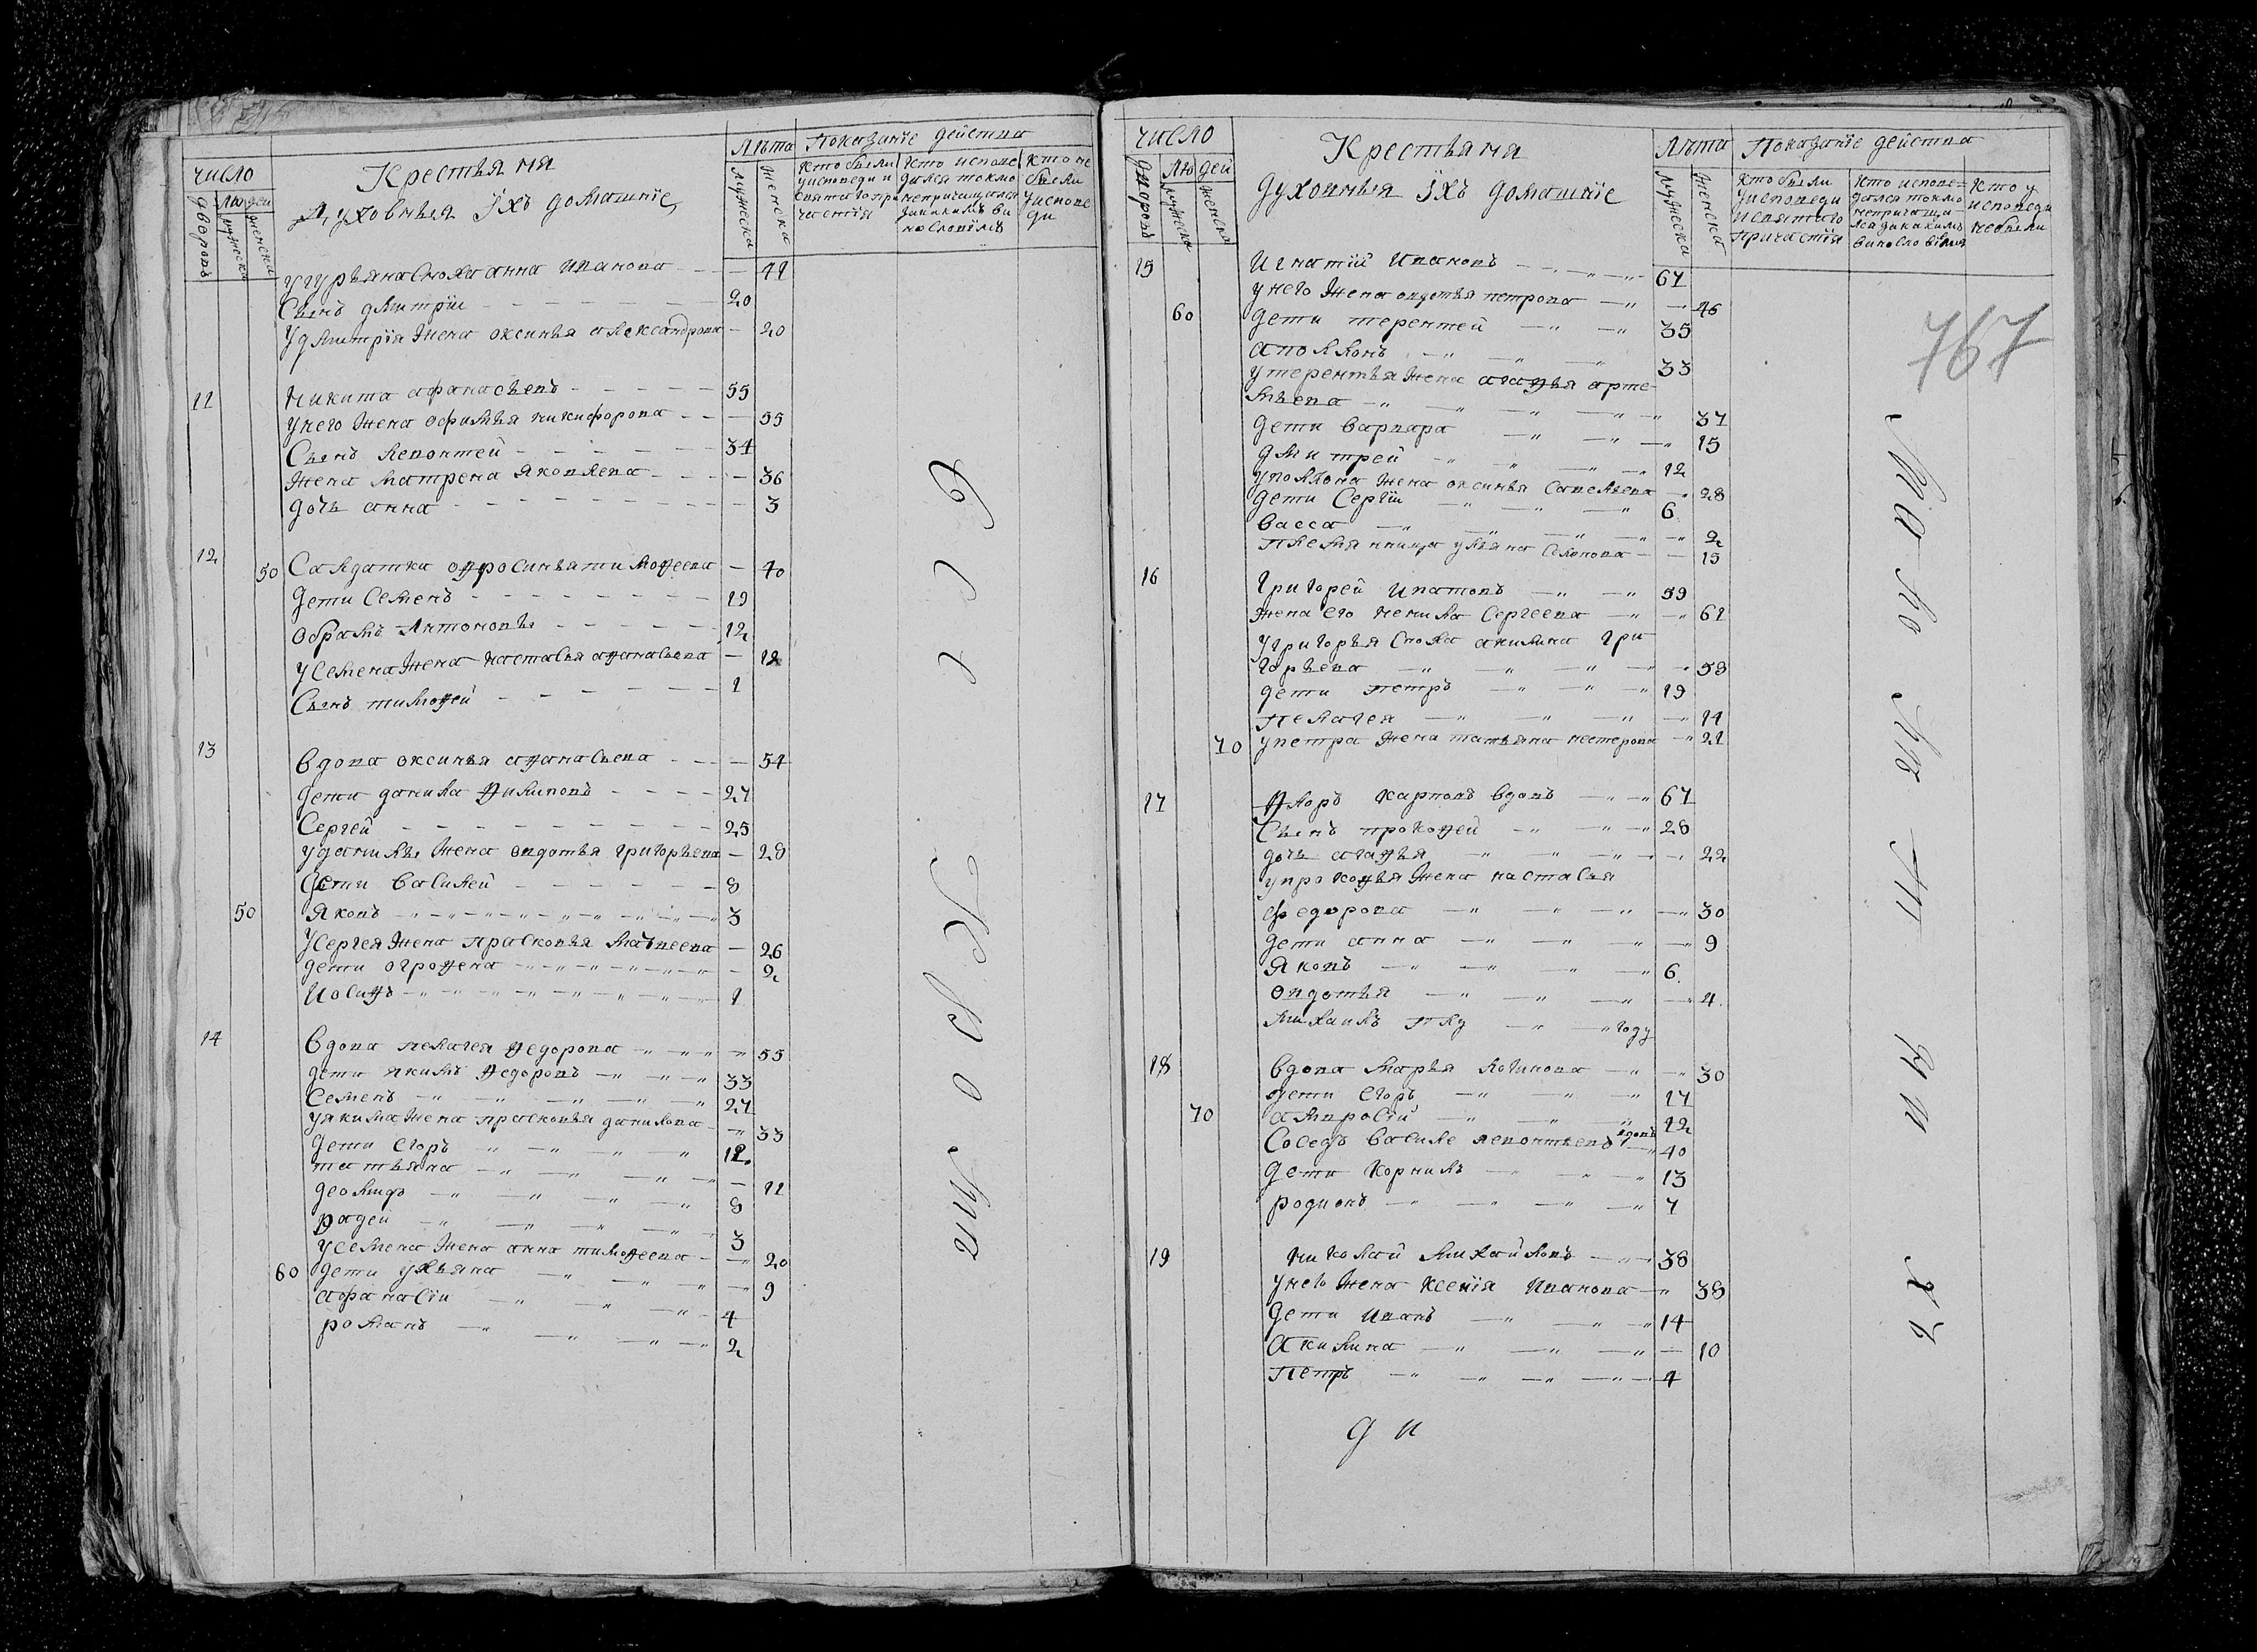 число
Крестьяня
Духовныя Ӱхъ домашнїе
Лѣта
Показанїе действа
дворовъ
людей
мужеска
женска
мужеска
женска
Кто были
у исповеди и
святаго при
частїя
Кто испове
дался токмо
непричащался
за каким ви
нословїем
Кто не
были
у испове
ди
у гурьяна сноха анна иванова — 41
Сынъ дмитрїи 20
у дмитрїя жена оксинья александрова — 20
11 Никита афанасьевъ 55
у него жена офимья никифорова — 55
Сынъ левонтей 34
жена матрена яковлева — 36
дочь анна — 3
12 50 Салдатка офросинья тимофеева — 40
дети Семенъ 19
обрамъ Антоновы 12
у семена жена настасья афанасьева — 18
Сынъ тимофей 1
13 вдова оксинья афанасьева — 54
дети данила филиповъ 27
Сергей 25
у данилы жена овдотья григорьева — 28
дети василей 8
50 Яковъ 3
у сергея жена прасковья матвеева — 26
дети огрофена — 2
Иосифъ 1
14 вдова пелагея федорова — 55
дети якимъ федоровъ 33
Семенъ 27
у якима жена прасковья данилова — 33
дети егоръ 12
татьяна — 11
деомидъ 8
фадей 3
у семена жена анна тимофеева — 20
60 дети ульяна — 9
афанасїи 4
романъ 2
число
Крестьяня
духовныя Ӱхъ домашнїе
Лѣта
Показанїе действа
767
дворовъ
людей
мужеска
женска
мужеска
женска
кто были
у исповеди
и святаго
причастїя
кто испове-
дался токмо
непричаща-
лся за каким
винословїем
кто у
исповеди
небыли
15 Игнатїй Ивановъ 67
у него жена овдотья петрова — 46
60 дети терентей 35
аполлонъ 33
у терентья жена агафья арте-
мьева — 37
дети варвара — 15
дмитрей 12
у поллона жена оксинья савельева — 28
дети Сергїи 6
васса — 2
племянница ульяна семонова — 15
16 Григорей Ипатовъ 59
жена его ненила Сергеева — 61
у григорья сноха акилина гри
горьева — 58
дети петръ 19
пелагея — 11
70 у петра жена татьяна нестерова — 21
17 флоръ карповъ вдовъ 67
Сынъ прокофей 28
дочь агафья — 22
у прокофья жена настасья
федорова — 30
дети анна — 9
Яковъ 6
овдотья — 4
михаилъ году
18 вдова марья логинова — 30
дети егоръ 17
70 амвросїй 12
Соседъ василе левонтьевъ вдовъ 40
дети корнилъ 13
родионъ 7
19 Николай михайловъ 38
у него жена ксенїя Иванова — 38
дети иванъ 14
акилина — 10
петръ 4